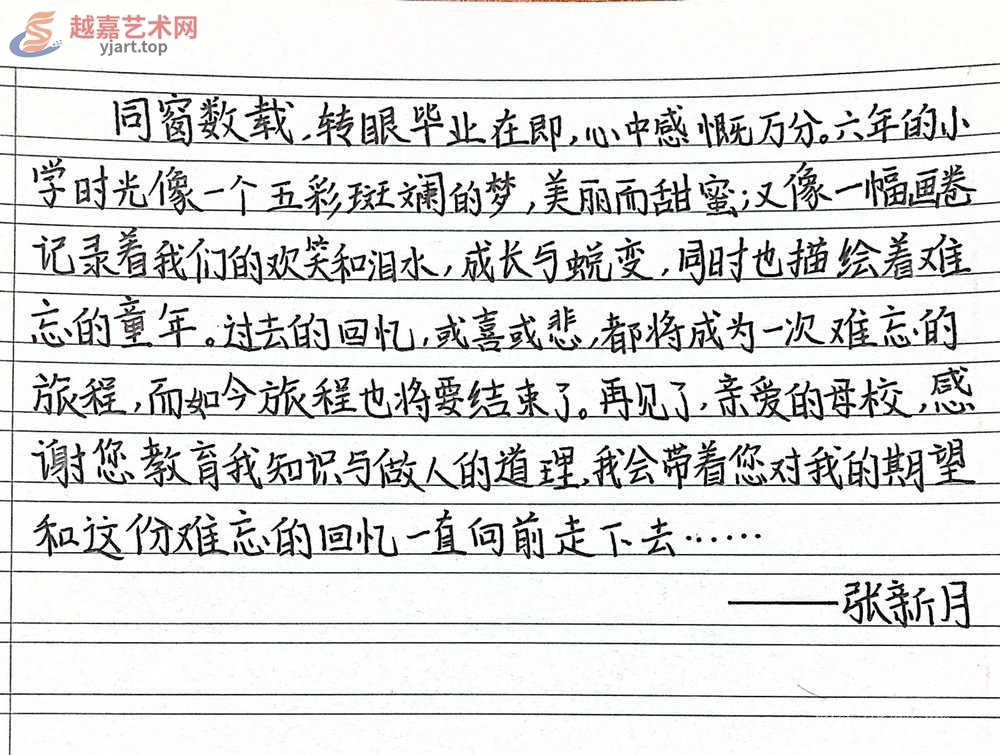 越嘉艺术网
yjart.top
同窗数载,转眼毕业在即,心中感慨万分。六年的小
学时光像一个五彩斑斓的梦,美丽而甜蜜;又像一幅画卷
记录着我们的欢笑和泪水,成长与蜕变,同时也描绘着难
忘的童年。过去的回忆,或喜或悲,都将成为一次难忘的
旅程,而如今旅程也将要结束了。再见了,亲爱的母校,感
谢您教育我知识与做人的道理,我会带着您对我的期望
和这份难忘的回忆一直向前走下去……
——张新月